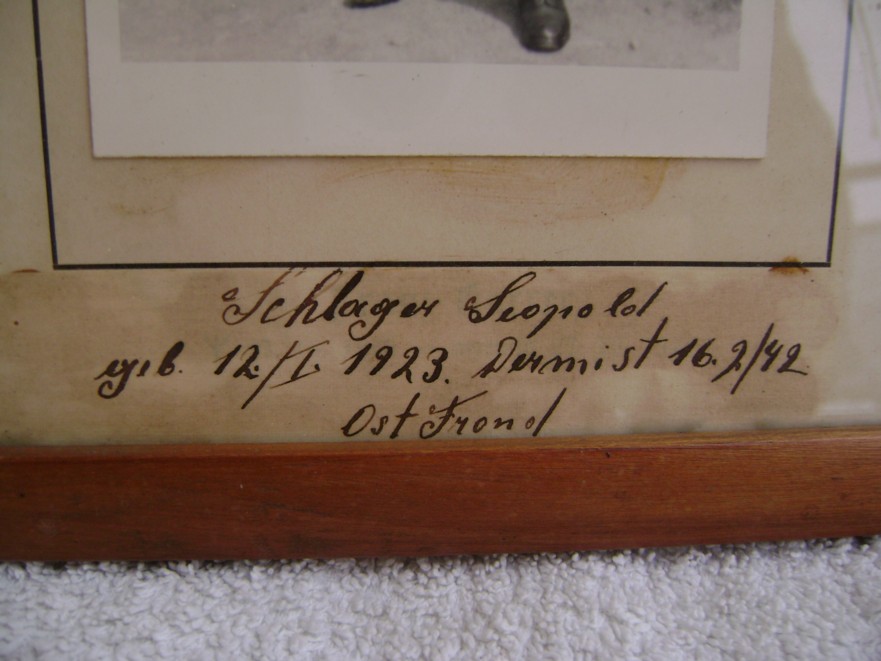 Schlager Leopold
geb. 12./I. 1923. Vermist 16.2/42
Ost Frond